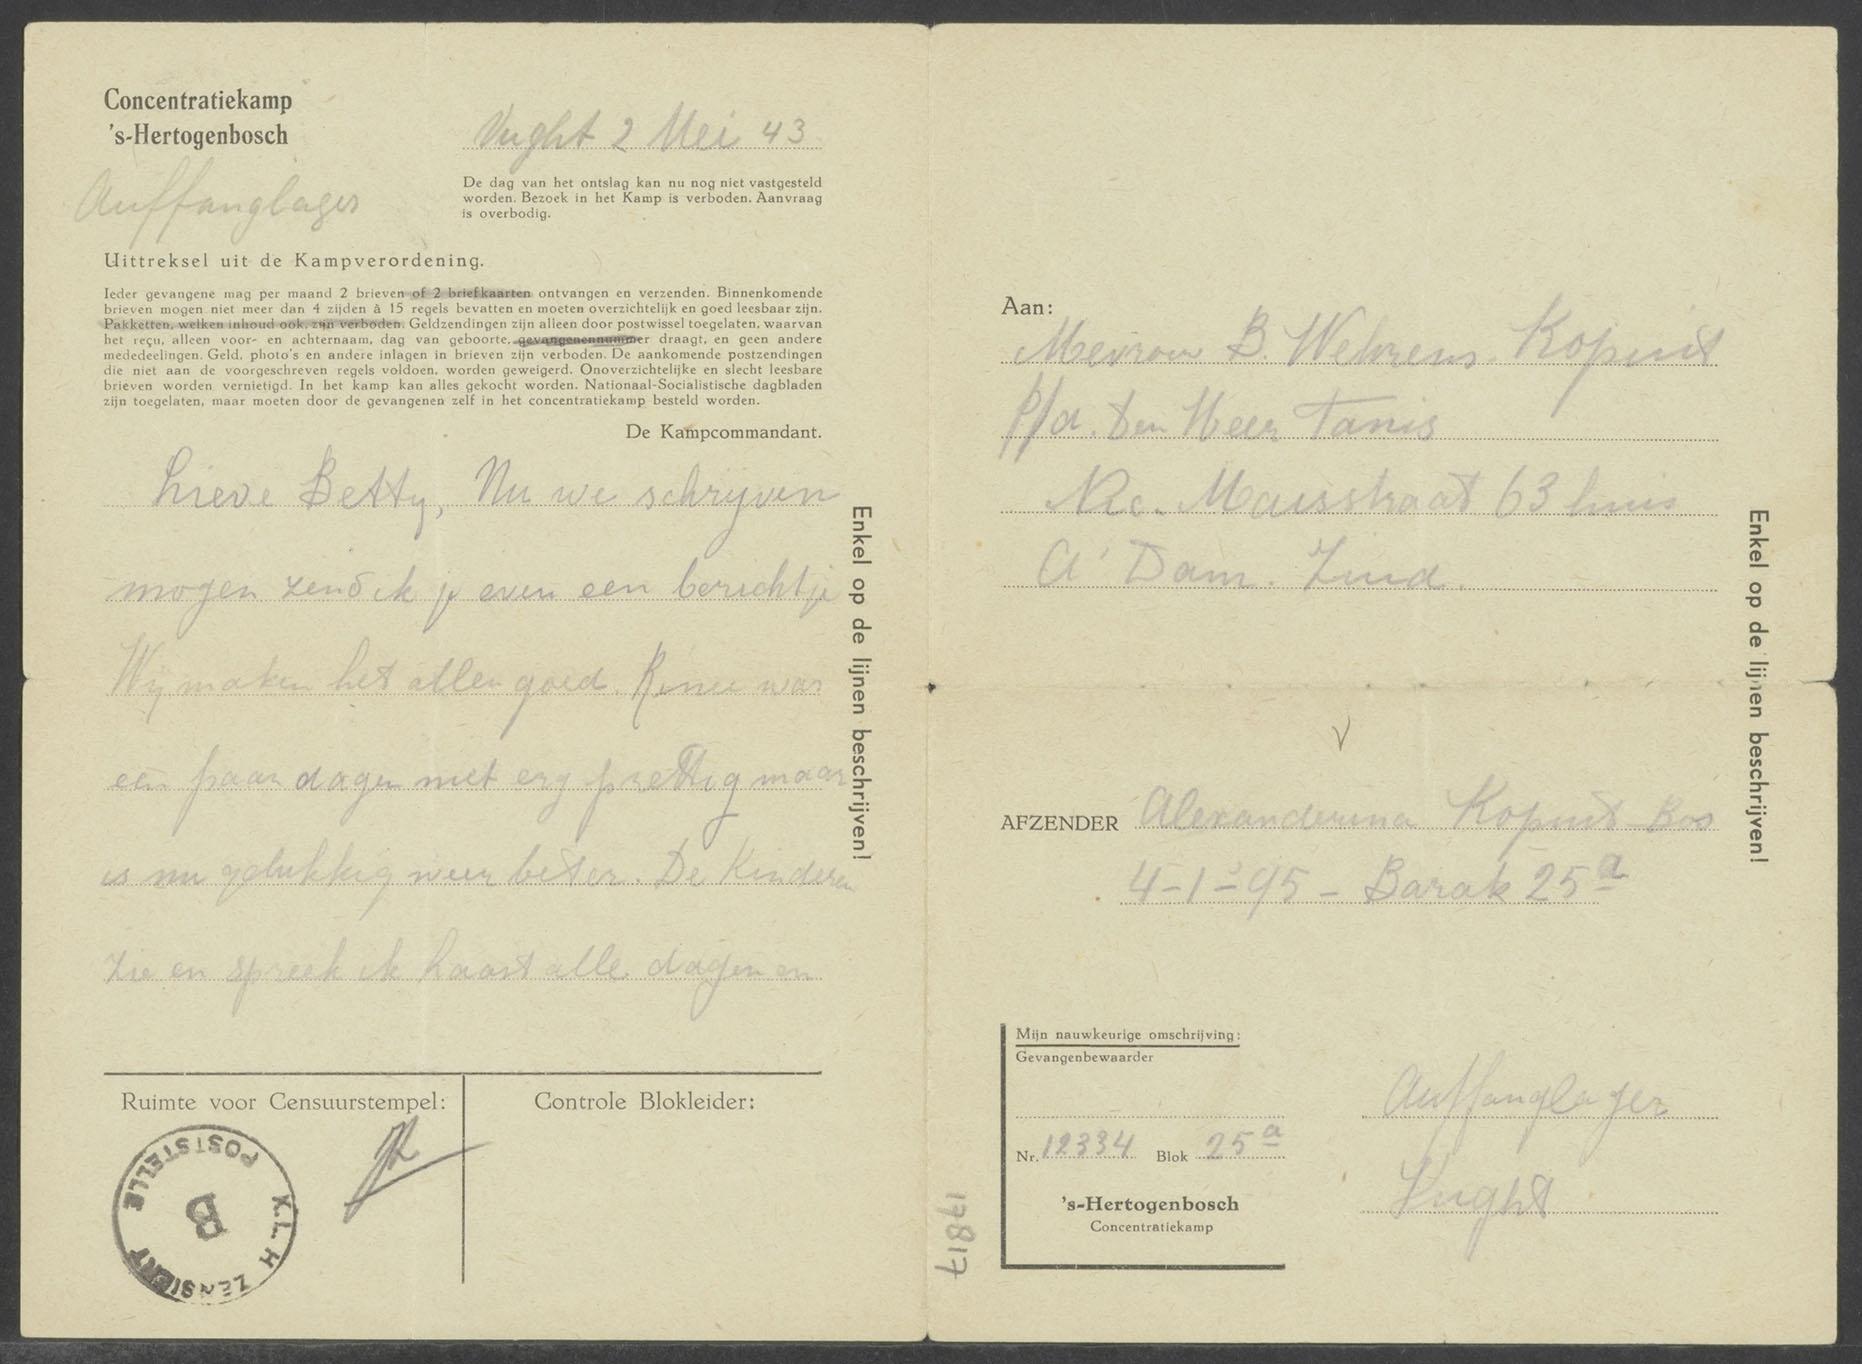 Concentratiekamp
's-Hertogenbosch
Auffanglager
Vught 2 Mei 43
De dag van het ontslag kan nu nog niet vastgesteld
worden. Bezoek in het Kamp is verboden. Aanvraag
is overbodig.
Uittreksel uit de Kampverordening.
Ieder gevangene mag per maand 2 brieven of 2 briefkaarten ontvangen en verzenden. Binnenkomende
brieven mogen niet meer dan 4 zijden à 15 regels bevatten en moeten overzichtelijk en goed leesbaar zijn.
Pakketten, welken inhoud ook, zijn verboden. Geldzendingen zijn alleen door postwissel toegelaten, waarvan
het reçu, alleen voor- en achternaam, dag van geboorte, gevangenennummer draagt, en geen andere
mededeelingen. Geld, photo's en andere inlagen in brieven zijn verboden. De aankomende postzendingen
die niet aan de voorgeschreven regels voldoen, worden geweigerd. Onoverzichtelijke en slecht leesbare
brieven worden vernietigd. In het kamp kan alles gekocht worden. Nationaal-Socialistische dagbladen
zijn toegelaten, maar moeten door de gevangenen zelf in het concentratiekamp besteld worden.
De Kampcommandant.
Lieve Betty, Nu we schrijven
mogen zend ik je even een berichtje
Wij maken het allen goed. Renee was
een paar dagen niet erg prettig maar
is nu gelukkig weer beter. De Kinderen
zie en spreek ik haast alle dagen en
Enkel op de lijnen beschrijven!
Ruimte voor Censuurstempel:
Controle Blokleider:
POSTSTELLE
K.L. H
ZENSIERT
B
Aan:
Mevrouw B. Wehrens-Kopuit
p/a. Den Heer Tanis
Nic. Maesstraat 63 huis
A'Dam. Zuid.
Enkel op de lijnen beschrijven!
AFZENDER Alexanderina Kopuit-Bos
4-1-'95 - Barak 25a
Mijn nauwkeurige omschrijving:
Gevangenbewaarder
Nr. 12334 Blok 25a
's-Hertogenbosch
Concentratiekamp
Auffanglager
Vught
17817